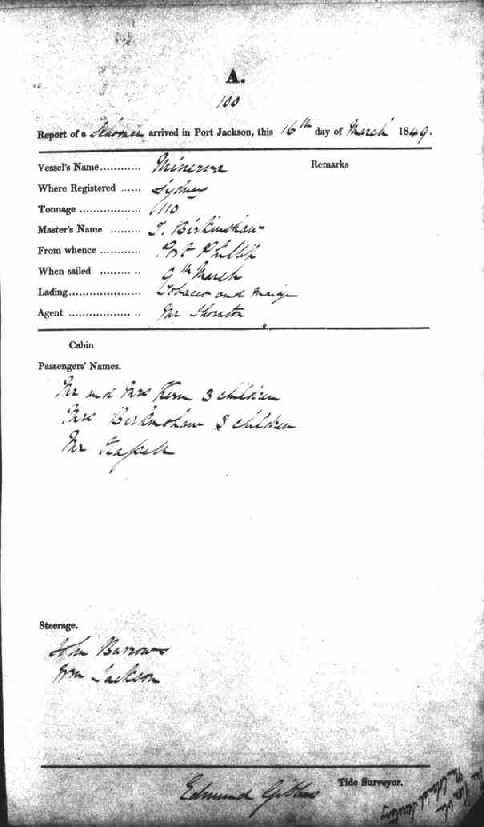 A.
100
Report of a Schooner arrived in Port Jackson, this 16th day of March 1849.
Vessel's Name............ Minerva
Remarks
Where Registered ...... Sydney
Tonnage ................... 110
Master's Name ......... J. Birkinshaw
From whence ............ Port Phillip
When sailed .......... .. 9th March
Lading..................... Tobacco and Maize
Agent ................... .. Mr
Cabin
Passengers' Names.
Mr and Mrs Kern 3 children
Mrs Birkinshaw 3 children
Mr
Steerage.
John Burrows
Wm Jackson
Tide Surveyor.
Edmund